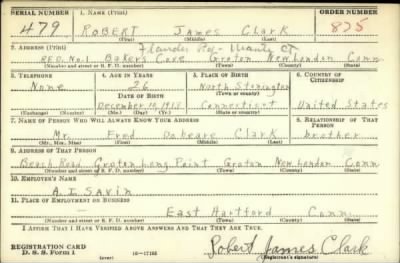 SERIAL NUMBER 1. NAME (Print) ORDER NUMBER
479 ROBERT James Clark 825
(First) (Middle) (Last)
2. ADDRESS (Print) Flanders Rd - Niantic CT
R.F.D. No. 1 Bakers Cove Groton New London Conn
(Number and street or R. F. D. number) (Town) (County) (State)
3. TELEPHONE 4. AGE IN YEARS 5. PLACE OF BIRTH 6. COUNTRY OF CITIZENSHIP
None 26 North Stonington
DATE OF BIRTH (Town or county)
December 10, 1913 Connecticut United States
(Mo.) (Day) (Yr.) (State or country)
7. NAME OF PERSON WHO WILL ALWAYS KNOW YOUR ADDRESS 8. RELATIONSHIP OF THAT PERSON
Mr. Fred Dabeare Clark brother
(Mr., Mrs., Miss) (First) (Middle) (Last)
9. ADDRESS OF THAT PERSON
Beach Road Groton Long Point Groton New London Conn
(Number and street or R. F. D. number) (Town) (County) (State)
10. EMPLOYER'S NAME
A. I. SAVIN
11. PLACE OF EMPLOYMENT OR BUSINESS
East Hartford Conn
(Number and street or R. F. D. number) (Town) (County) (State)
I AFFIRM THAT I HAVE VERIFIED ABOVE ANSWERS AND THAT THEY ARE TRUE.
REGISTRATION CARD
D. S. S. Form 1 (over) 16-17105 Robert James Clark
(Registrant's signature)